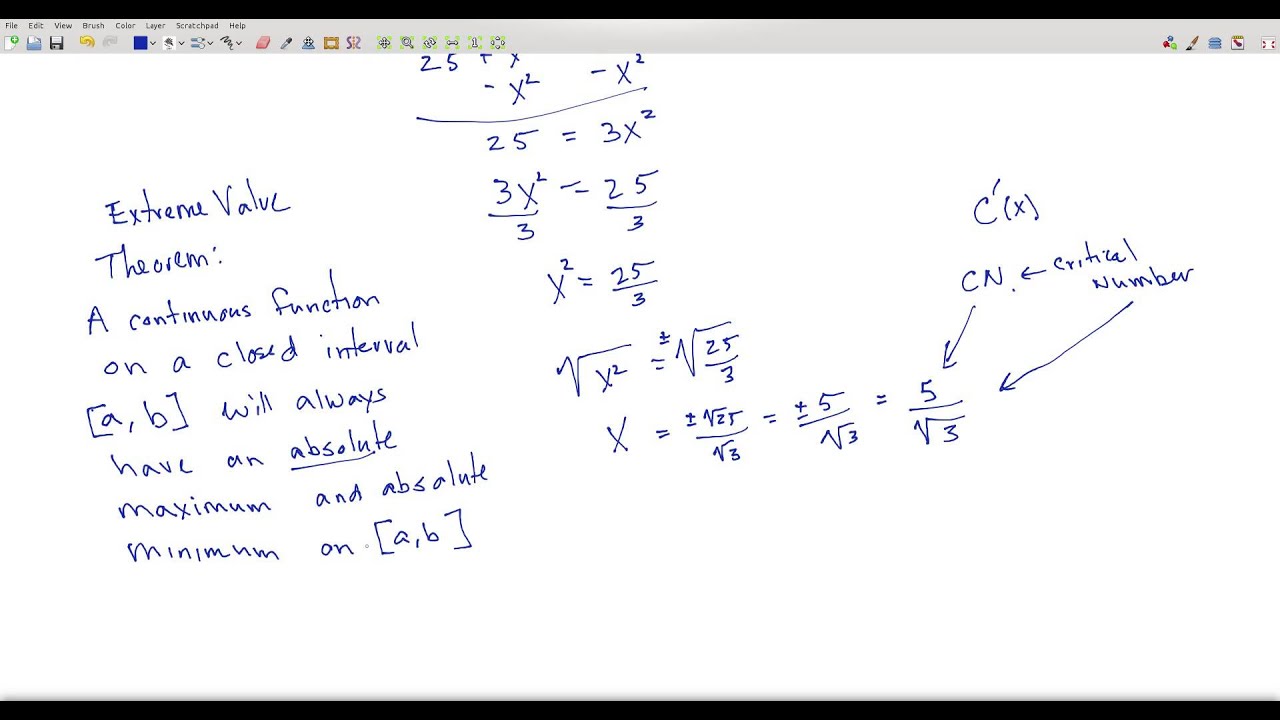 File Edit View Brush Color Layer Scratchpad Help
25 + x
- x² - x²
25 = 3x²
3x² = 25
3 3
x² = 25
3
√x² = ±√25
3
x = ±√25 = ±5 = 5
√3 √3 √3
Extreme Value
Theorem:
A continuous function
on a closed interval
[a, b] will always
have an absolute
maximum and absolute
minimum on [a, b]
C'(x)
CN. ← critical
number